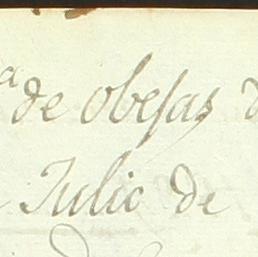 de obejas
Julio de